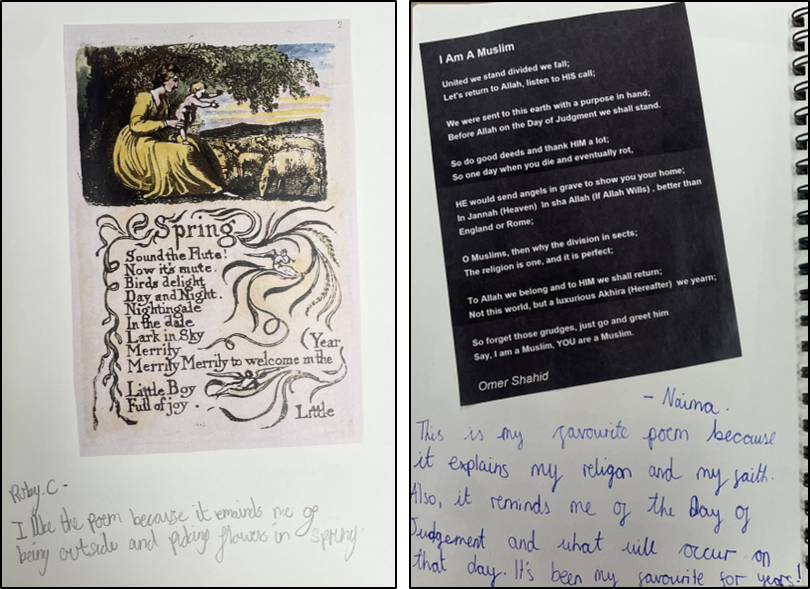 2
Spring
Sound the Flute!
Now it's mute.
Birds delight
Day and Night.
Nightingale
In the dale
Lark in Sky
Merrily
Merrily Merrily to welcome in the
Year
Little Boy
Full of joy.
Little
Ruby.C-
I like the poem because it eminds me of
being outside and picking flowers in spring.
I Am A Muslim
United we stand divided we fall;
Let's return to Allah, listen to HIS call;
We were sent to this earth with a purpose in hand;
Before Allah on the Day of Judgment we shall stand.
So do good deeds and thank HIM a lot;
So one day when you die and eventually rot,
HE would send angels in grave to show you your home;
In Jannah (Heaven) In sha Allah (If Allah Wills) , better than
England or Rome;
O Muslims, then why the division in sects;
The religion is one, and it is perfect;
To Allah we belong and to HIM we shall return;
Not this world, but a luxurious Akhira (Hereafter) we yearn;
So forget those grudges, just go and greet him
Say, I am a Muslim, YOU are a Muslim.
Omer Shahid
- Naima.
This is my favourite poem because
it explains my religon and my faith.
Also, it reminds me of the Day of
Judgement and what will occur on
that day. It's been my favourite for years!